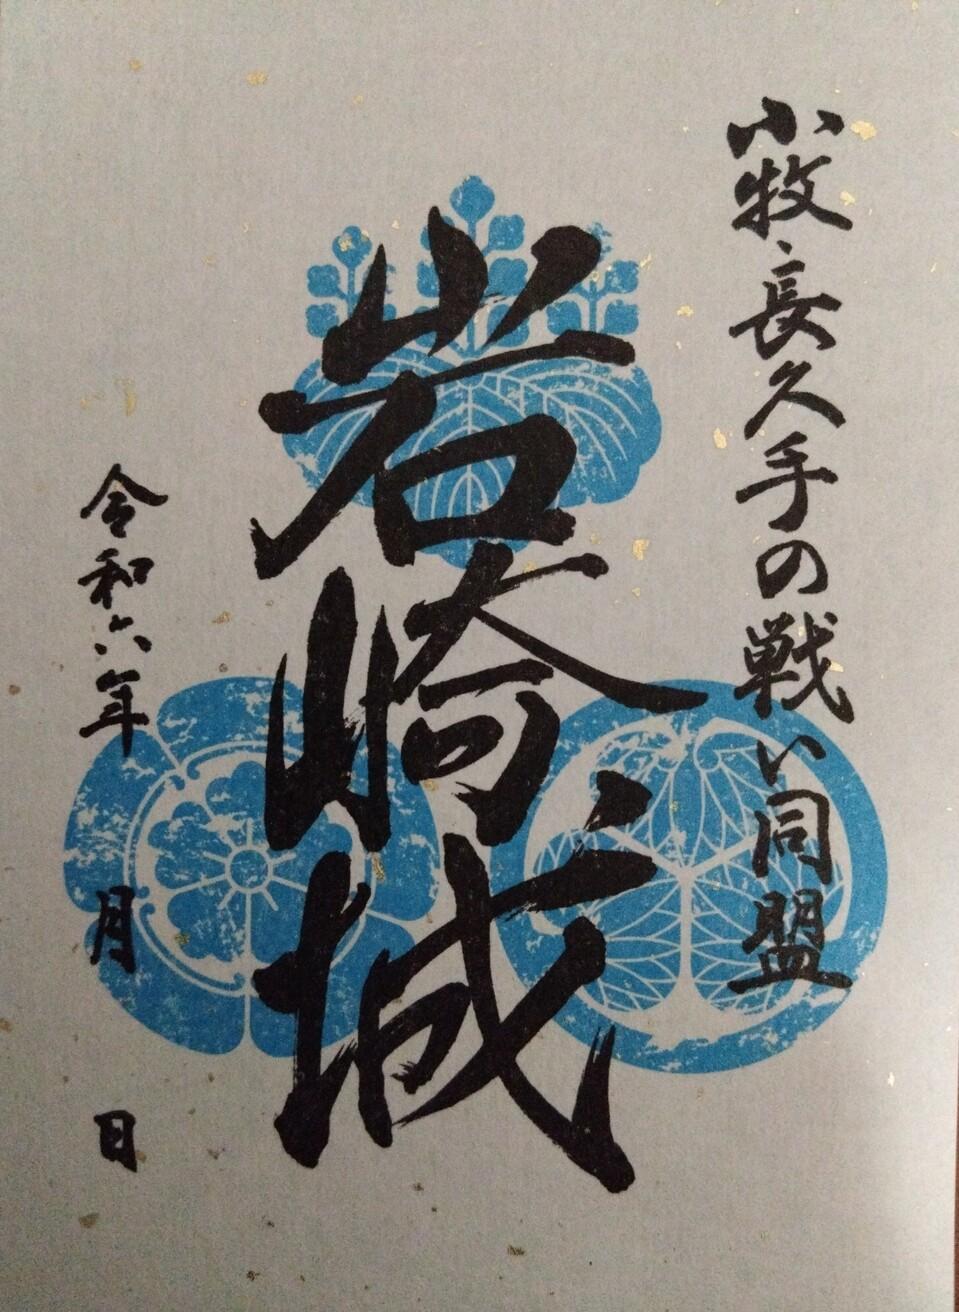 小牧・長久手の戦い同盟
岩崎城
令和六年 月 日